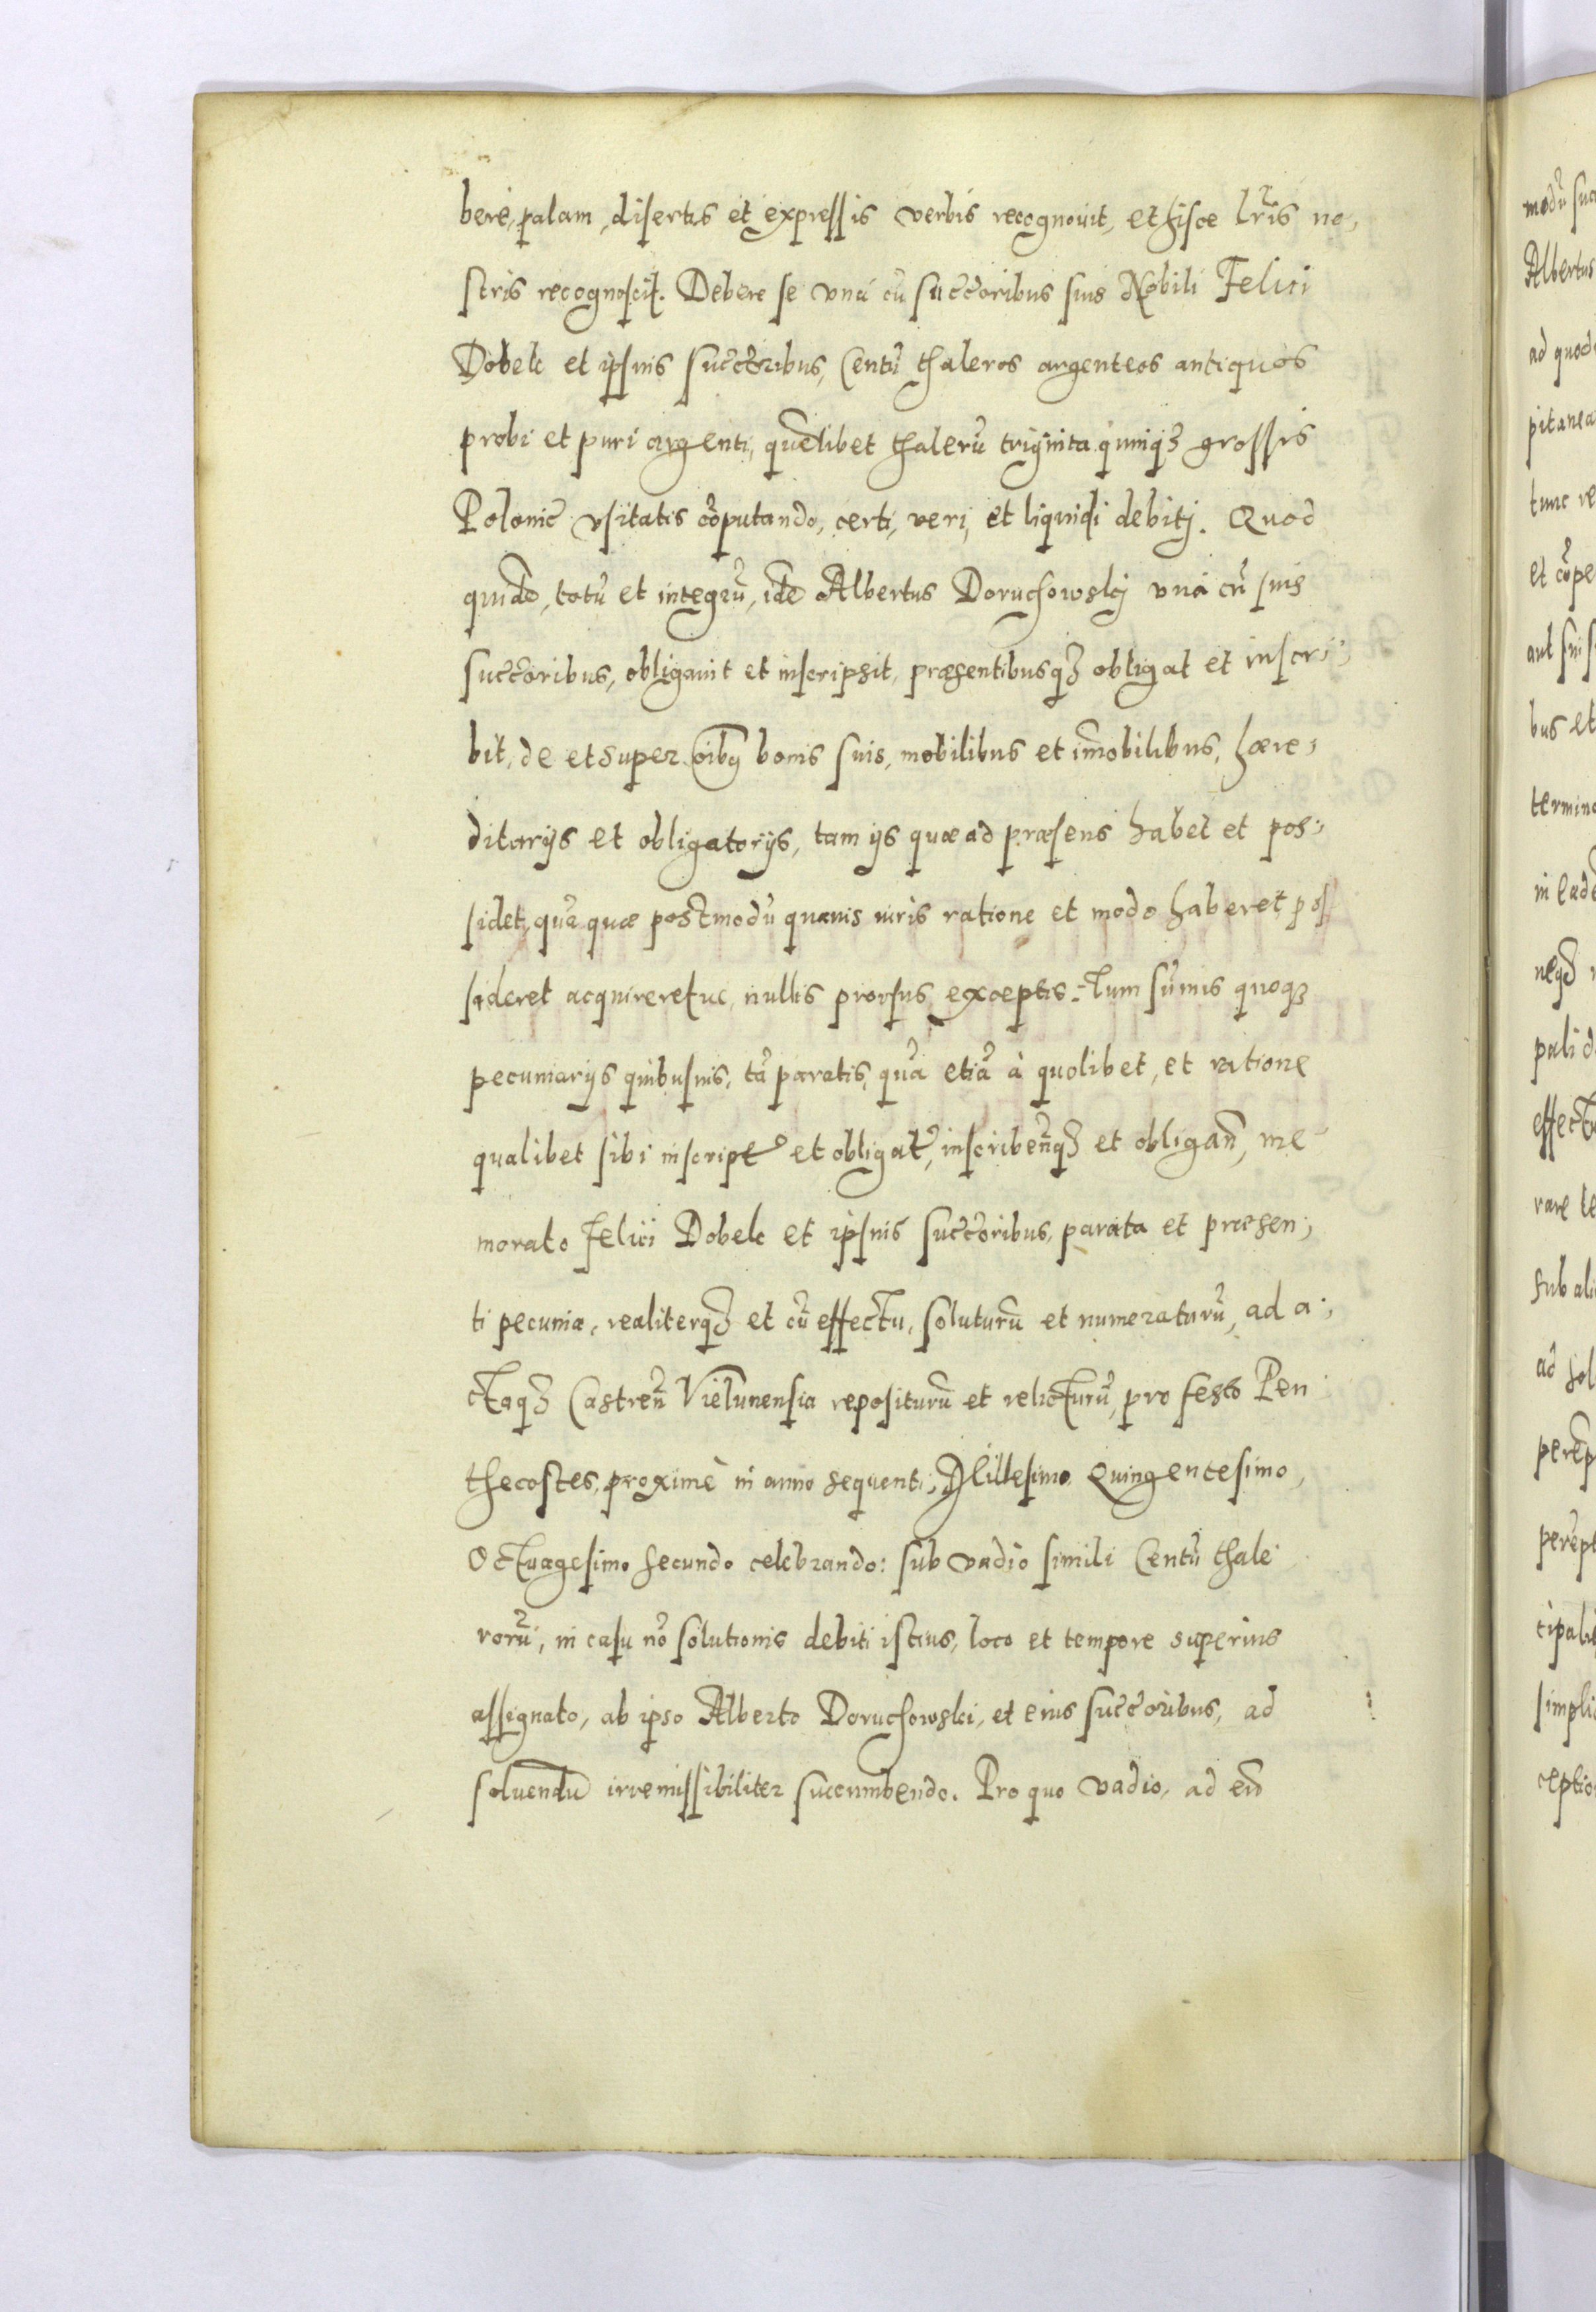 berè, palam, disertis et expressis verbis recognouit, et hisce lr̃is no,
stris recognoscit. Debere se vnà cũ succ̃oribus suis Nobili Felici
Dobek et ipsius succ̃oribus, Centũ thaleros argenteos antiquos
probi et puri argenti, quẽlibet thalerũ triginta quinq3 grossis
Polonic̃ vsitatis cõputando, certi, veri, et liquidi debitj. Quod
quidẽ, totũ et integrũ, idẽ Albertus Doruchowskj vnà cũ suis
succ̃oribus, obligauit et inscripsit, præsentibusq3 obligat et inscri,
bit, de et super oĩbꝰ bonis suis, mobilibus et im̃obilibus, hære,
ditarijs et obligatorijs, tam ijs quæ ad præsens habet et pos,
sidet, quã quæ postmodũ quauis iuris ratione et modo haberet pos
sideret acquireretue, nullis prorsus exceptis. Tum sũmis quoq3
pecuniarijs quibusuis, tã paratis, quã etiã à quolibet, et ratione
qualibet sibi inscript̃ et obligat̃, inscribeñq3 et obligañ, me
morato Felici Dobek et ipsius succ̃oribus, parata et præsen,
ti pecunia, realiterq3 et cũ effectu, soluturũ et numeraturũ, ad a,
ctaq3 Castreñ Vielunensia repositurũ et relicturũ, pro festo Pen
thecostes, proximè in anno sequenti, Millesimo Quingentesimo,
Octuagesimo secundo celebrando: sub vadio simili Centũ thale
rorũ, in casu nõ solutionis debiti istius, loco et tempore superius
assignato, ab ipso Alberto Doruchowski, et eius succ̃oribus, ad
soluendũ irremissibiliter succumbendo. Pro quo vadio, ad eũ
modũ sua
Albertus
ad quod
pitanea
tunc re
et cõpe
aut sui s
bus et
termino
in eadẽ
neq3
pali d
effectu
rare te
sub ali
ad sol
perẽp
perẽpt
cipalit
simplic
ceptio